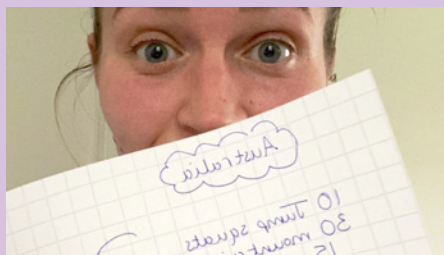 Australia
10 Jump squats
30
15